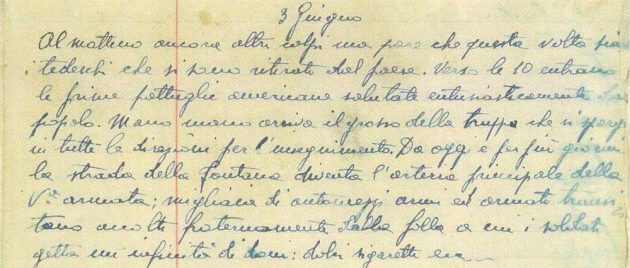 3 Giugno
Al mattino ancora altri colpi ma pare che questa volta sia
i tedeschi che si sono ritirati dal paese. Verso le 10 entrano
le prime pattuglie americane salutate entusiasticamente dal
popolo. Mano mano arriva il grosso della truppa che si sparge
in tutte le direzioni per l'inseguimento. Da oggi e per più giorni
la strada della Fontana diventa l'arteria principale della
Vª armata; migliaia di automezzi armi ed armati transi
tano accolti fraternamente dalla folla a cui i soldati
getta un'infinità di doni: dolci sigarette ecc